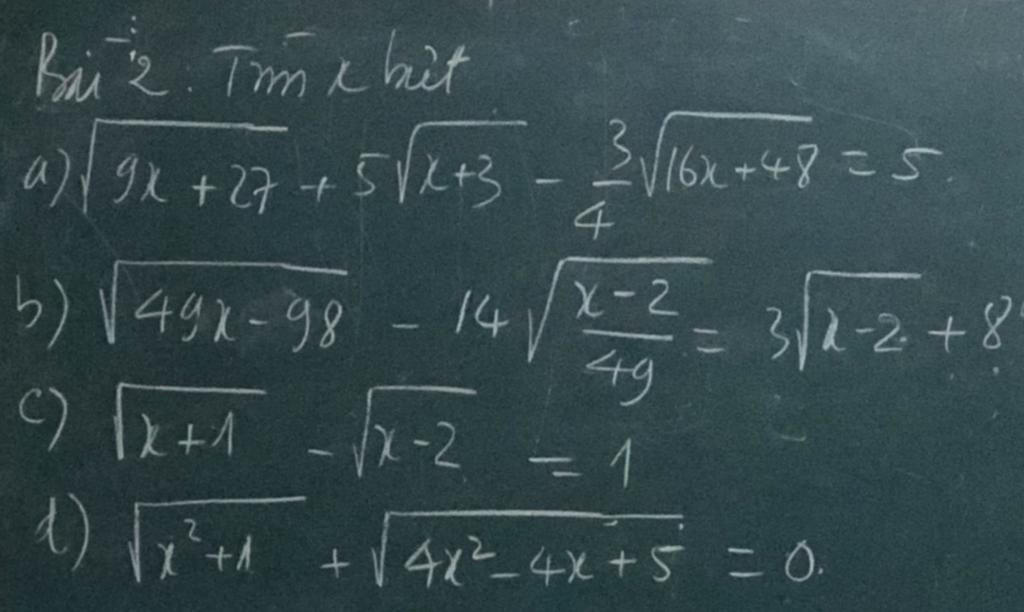 Bài 2. Tìm x biết
a) √(9x + 27) + 5√(x+3) - 3/4 √(16x+48) = 5.
b) √(49x - 98) - 14 √((x-2)/49) = 3√(x-2) + 8
c) √(x+1) - √(x-2) = 1
d) √(x²+1) + √(4x² - 4x + 5) = 0.